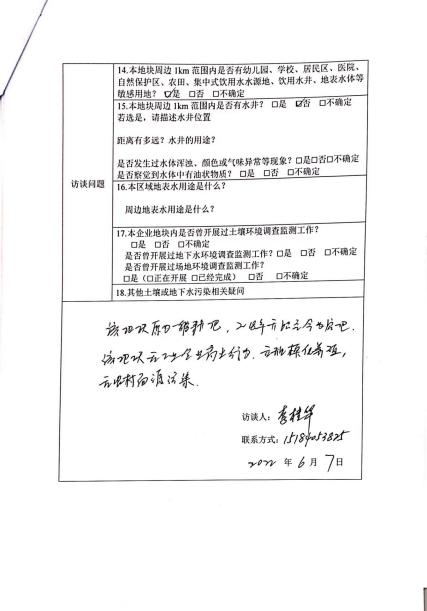 14.本地块周边1km范围内是否有幼儿园、学校、居民区、医院、
自然保护区、农田、集中式饮用水水源地、饮用水井、地表水体等
敏感用地？ ☑是 □否 □不确定
15.本地块周边1km范围内是否有水井？ □是 ☑否 □不确定
若选是，请描述水井位置
距离有多远？水井的用途？
是否发生过水体浑浊、颜色或气味异常等现象？□是□否□不确定
是否察觉到水体中有油状物质？ □是 □否 □不确定
访谈问题
16.本区域地表水用途是什么？
周边地表水用途是什么？
17.本企业地块内是否曾开展过土壤环境调查监测工作？
□是 □否 □不确定
是否曾开展过地下水环境调查监测工作？□是 □否 □不确定
是否曾开展过场地环境调查监测工作？
□是（□正在开展 □已经完成） □否 □不确定
18.其他土壤或地下水污染相关疑问
该地块原为耕地
该地块无工业企业
访谈人：李桂华
联系方式：15184053825
2022 年 6 月 7 日